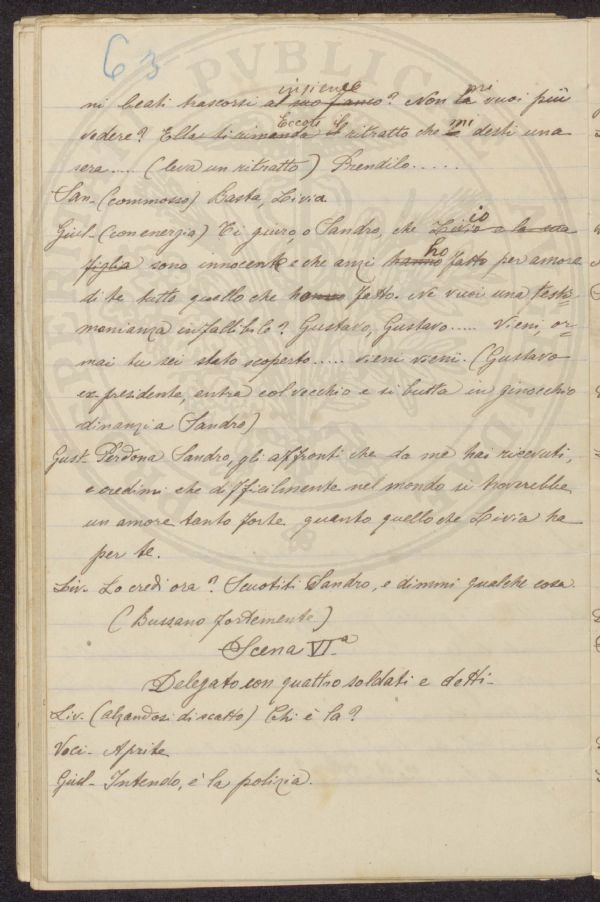 63
insieme mi
ni beati trascorsi al suo fianco? Non la vuoi più
Eccoti il mi
vedere? Ella ti rimanda il ritratto che le desti una
sera.... (leva un ritratto) Prendilo.....
San- (commosso) Basta, Livia
Giul- (con energia) Ti giuro, o Sandro, che Livia e la sua
io
figlia sono innocente e che anzi hanno fatto per amore
ho
di te tutto quello che hanno fatto. Ne vuoi una testi
monianza infallibile? Gustavo, Gustavo..... Vieni, or-
mai tu sei stato scoperto..... vieni vieni. (Gustavo
ex presidente, entra col vecchio e si butta in ginocchio
dinanzi a Sandro)
Gust- Perdona Sandro, gli affronti che da me hai ricevuti,
e credimi che difficilmente nel mondo si troverebbe
un amore tanto forte quanto quello che Livia ha
per te.
Liv- Lo credi ora? Scuotiti Sandro, e dimmi qualche cosa
(Bussano fortemente)
Scena VIa
Delegato con quattro soldati e detti-
Liv. (alzandosi di scatto) Chi è la?
Voci- Aprite
Giul- Intendo, è la polizia.